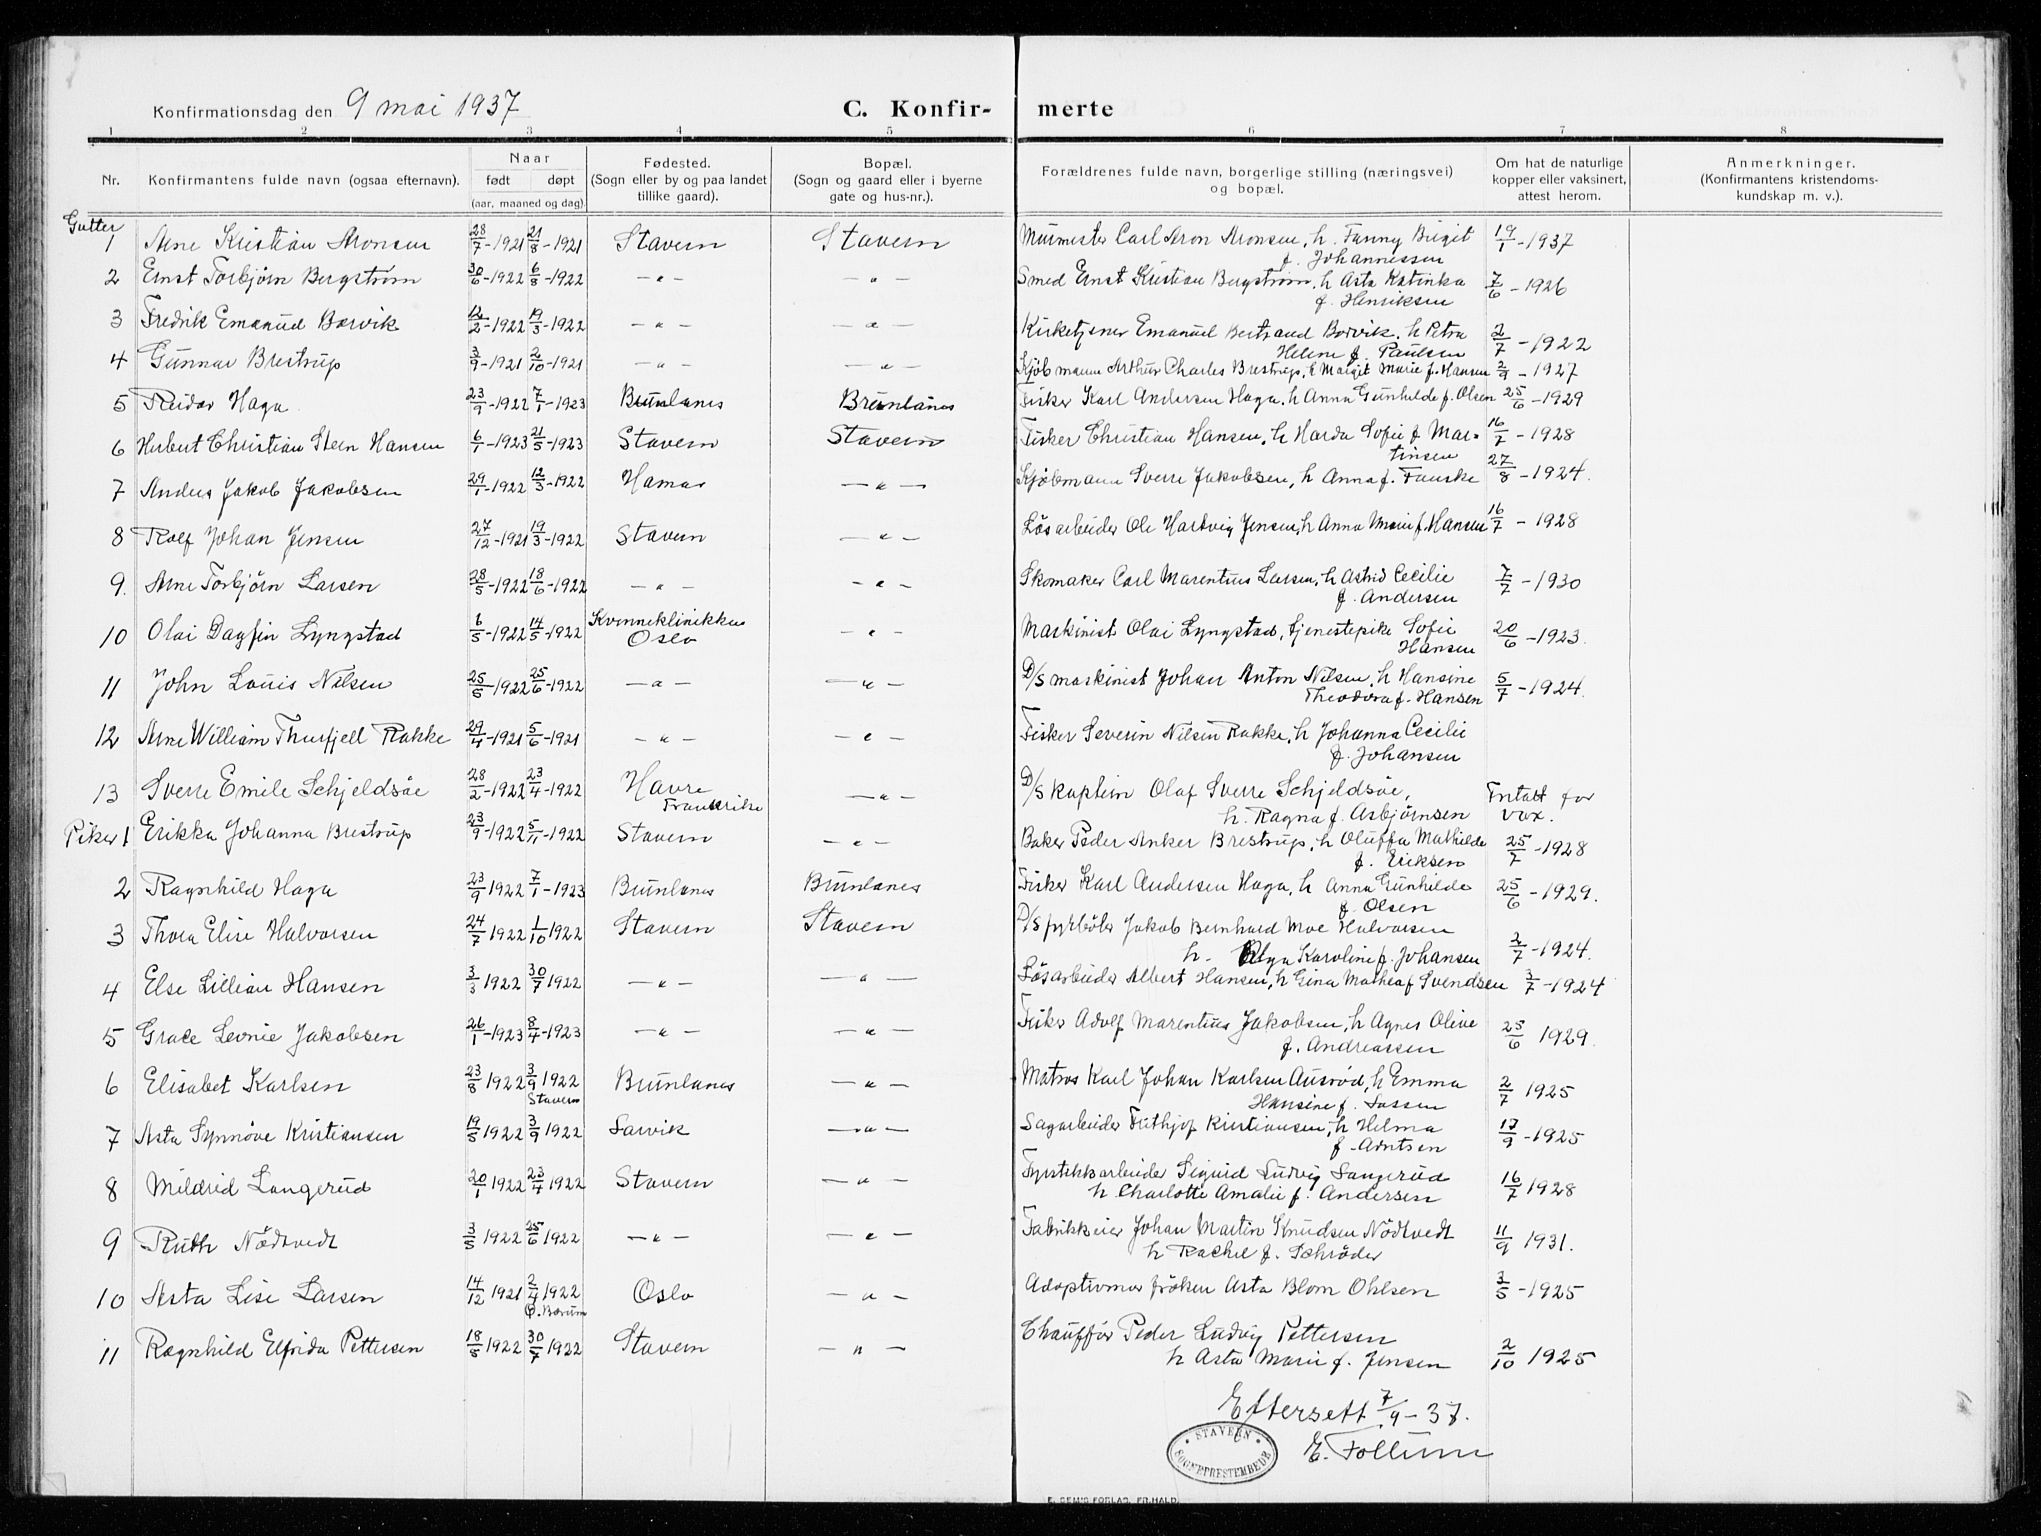 Konfirmationsdag den 9 mai 1937 C. Konfir- merte
1 2 3 4 5 6 7 8
Nr. Konfirmantens fulde navn (ogsaa efternavn). Naar født døpt (aar, maaned og dag). Fødested. (Sogn eller by og paa landet tillike gaard). Bopæl. (Sogn og gaard eller i byerne gate og hus-nr.). Forældrenes fulde navn, borgerlige stilling (næringsvei) og bopæl. Om hat de naturlige kopper eller vaksinert, attest herom. Anmerkninger. (Konfirmantens kristendoms- kundskap m. v.).
Gutter
1 Arne Kristian Aronsen 28/7-1921 21/8-1921 Stavern Stavern Murmester Carl Aron Aronsen, h. Fanny Birgit 19/1-1937
f. Johannessen
2 Ernst Torbjørn Bergstrøm 30/6-1922 6/8-1922 -"- -"- Smed Ernst Kristian Bergstrøm, h Asta Katinka 7/6-1926
f. Henriksen
3 Fredrik Emanuel Borvik 12/2-1922 19/3-1922 -"- -"- Kirketjener Emanuel Bertrand Borvik, h Petra 2/7-1922
Helene f. Paulsen
4 Gunnar Brestrup 3/9-1921 2/10-1921 -"- -"- Kjøbmann Arthur Charles Brestrup, h Margit Marie f. Hansen 2/9-1927
5 Reidar Haga 23/9-1922 7/1-1923 Brunlanes Brunlanes Fisker Karl Andersen Haga, h Anna Gunhilde f. Olsen 25/6-1929
6 Herbert Christian Steen Hansen 6/1-1923 21/5-1923 Stavern Stavern Fisker Christian Hansen, h Harda Sofie f Mar- 16/7-1928
tinsen
7 Anders Jakob Jakobsen 29/1-1922 12/3-1922 Hamar -"- Kjøbmann Sverre Jakobsen, h Anna f. Fauske 27/8-1924.
8 Rolf Johan Jensen 27/12-1921 19/3-1922 Stavern -"- Løsarbeider Ole Hartvig Jensen, h Anna Marie f. Hansen 16/7-1928
9. Arne Torbjørn Larsen 28/5-1922 18/6-1922 -"- -"- Skomaker Carl Marentius Larsen, h Astrid Cecilie 7/7-1930
f. Andersen
10 Olai Dagfin Lyngstad 6/5-1922 14/5-1922 Kvinneklinikken -"- Maskinist Olai Lyngstad, tjenestepike Sofie 20/6-1923.
Oslo Hansen
11 John Louis Nilsen 25/5-1922 25/6-1922 -"- -"- D/S maskinist Johan Anton Nilsen, h Hansine 5/7-1924.
Theodora f. Hansen
12 Arne William Thurfjell Rakke 29/4-1921 5/6-1921 -"- -"- Fisker Severin Nilsen Rakke, h Johanna Cecilie
f. Johansen
13 Sverre Emile Schjeldsøe 28/2-1922 23/4-1922 Havre -"- D/S kaptein Olaf Sverre Schjeldsøe, Fritatt for
Frankrike h. Ragna f. Asbjørnsen vax.
Piker 1 Erikka Johanna Brestrup 23/9-1922 5/11-1922 Stavern -"- Baker Peder Anker Brestrup, h Oluffa Mathilde 25/7-1928
f. Eriksen
2 Ragnhild Haga 23/9 1922 7/1-1923 Brunlanes Brunlanes Fisker Karl Andersen Haga, h Anna Gunhilde 25/6-1929.
f. Olsen
3 Thora Elise Halvorsen 24/7 1922 1/10 1922 Stavern Stavern D/S fyrbøter Jakob Bernhard Moe Halvorsen
h. Olga Karoline f. Johansen 2/7-1924.
4 Else Lillian Hansen 3/3 1922 30/7 1922 -"- -"- Løsarbeider Albert Hansen, h Gina Mathea f Svendsen 3/7-1924
5 Grace Leonie Jakobsen 26/1-1923 8/4-1923 -"- -"- Fisker Adolf Marentius Jakobsen, h Agnes Olive 25/6 1929.
f. Andreassen
6 Elisabet Karlsen 23/8 1922 3/9 1922 Brunlanes -"- Matros Karl Johan Karlsen Ausrød, h Emma 2/7 1925
Stavern Hansine f. Lassen
7 Asta Synnøve Kristiansen 19/5 1922 3/9 1922 Larvik -"- Sagarbeider Frithjof Kristiansen, h Helma 17/9-1925
f. Arntsen
8 Mildrid Langerud 20/1 1922 23/4 1922 Stavern -"- Fyrstikkarbeider Sigurd Ludvig Langerud 16/7 1928
h Charlotte Amalie f. Andersen
9 Ruth Nødtvedt 3/5 1922 25/6 1922 -"- -"- Fabrikkeier Johan Martin Knudsen Nødtvedt 11/9 1931.
h Rachel f. Schrøder
10 Asta Lise Larsen 14/12 1921 2/4 1922 Oslo -"- Adoptivmor frøken Asta Blom Ohlsen 3/5-1925
Ø. Bærum
11 Ragnhild Elfrida Pettersen 18/5 1922 30/7 1922 Stavern -"- Chauffør Peder Ludvig Pettersen
h Asta Marie f. Jensen 2/10 1925
Eftersett 7/9-37.
E. Follum
STAVERN SOGNEPRESTEMBEDE
E. SEM'S FORLAG, FR.HALD.